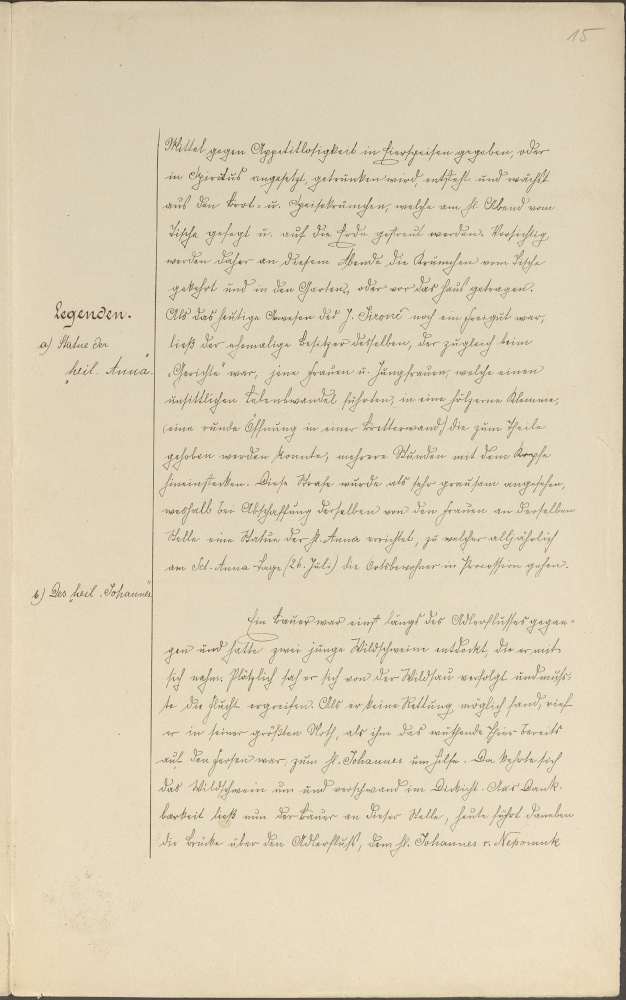 15
Mittel gegen Appetitlosigkeit in Eierspeisen gegeben, oder
in Spiritus angesetzt, getrunken wird, entsteht und wächst
aus den Brot- u. Speisekrümchen, welche am hl. Abend vom
Tische gefegt u. auf die Erde gestreut werden. Vorsichtig
werden daher an diesem Abende die Krümchen vom Tische
gekehrt und in den Garten, oder vor das Haus getragen.
Legenden.
a) Statue der
heil. Anna.
Als das heutige Anwesen des J. noch ein Freigut war,
ließ der ehemalige Besitzer desselben, der zugleich beim
"Gerichte" war, jene Frauen u. Jungfrauen, welche einen
unsittlichen Lebenswandel führten, in eine hölzerne Klemme,
(eine runde Öffnung in einer Bretterwand) die zum Theile
gehoben werden konnte, mehrere Stunden mit dem Kopfe
hineinstecken. Diese Strafe wurde als sehr grausam angesehen,
weshalb bei Abschaffung derselben von den Frauen an derselben
Stelle eine Statue der hl. Anna errichtet, zu welcher alljährlich
am Sct. Anna-Tage (26. Juli) die Ortsbewohner in Procession gehen.
b) Des heil. Johannes
Ein Bauer war einst längs des Adlerflusses gegan-
gen und hatte zwei junge Wildschweine entdeckt, die er mit
sich nahm. Plötzlich sah er sich von der Wildsau verfolgt und muß-
te die Flucht ergreifen. Als er keine Rettung möglich fand, rief
er in seiner größten Noth, als ihm das wüthende Thier bereits
auf den Fersen war, zum hl. Johannes um Hilfe. Da kehrte sich
das Wildschwein um und verschwand im Dickicht. Aus Dank-
barkeit ließ nun der Bauer an dieser Stelle, heute führt daneben
die Brücke über den Adlerfluß, dem hl. Johannes v. Nepomuk